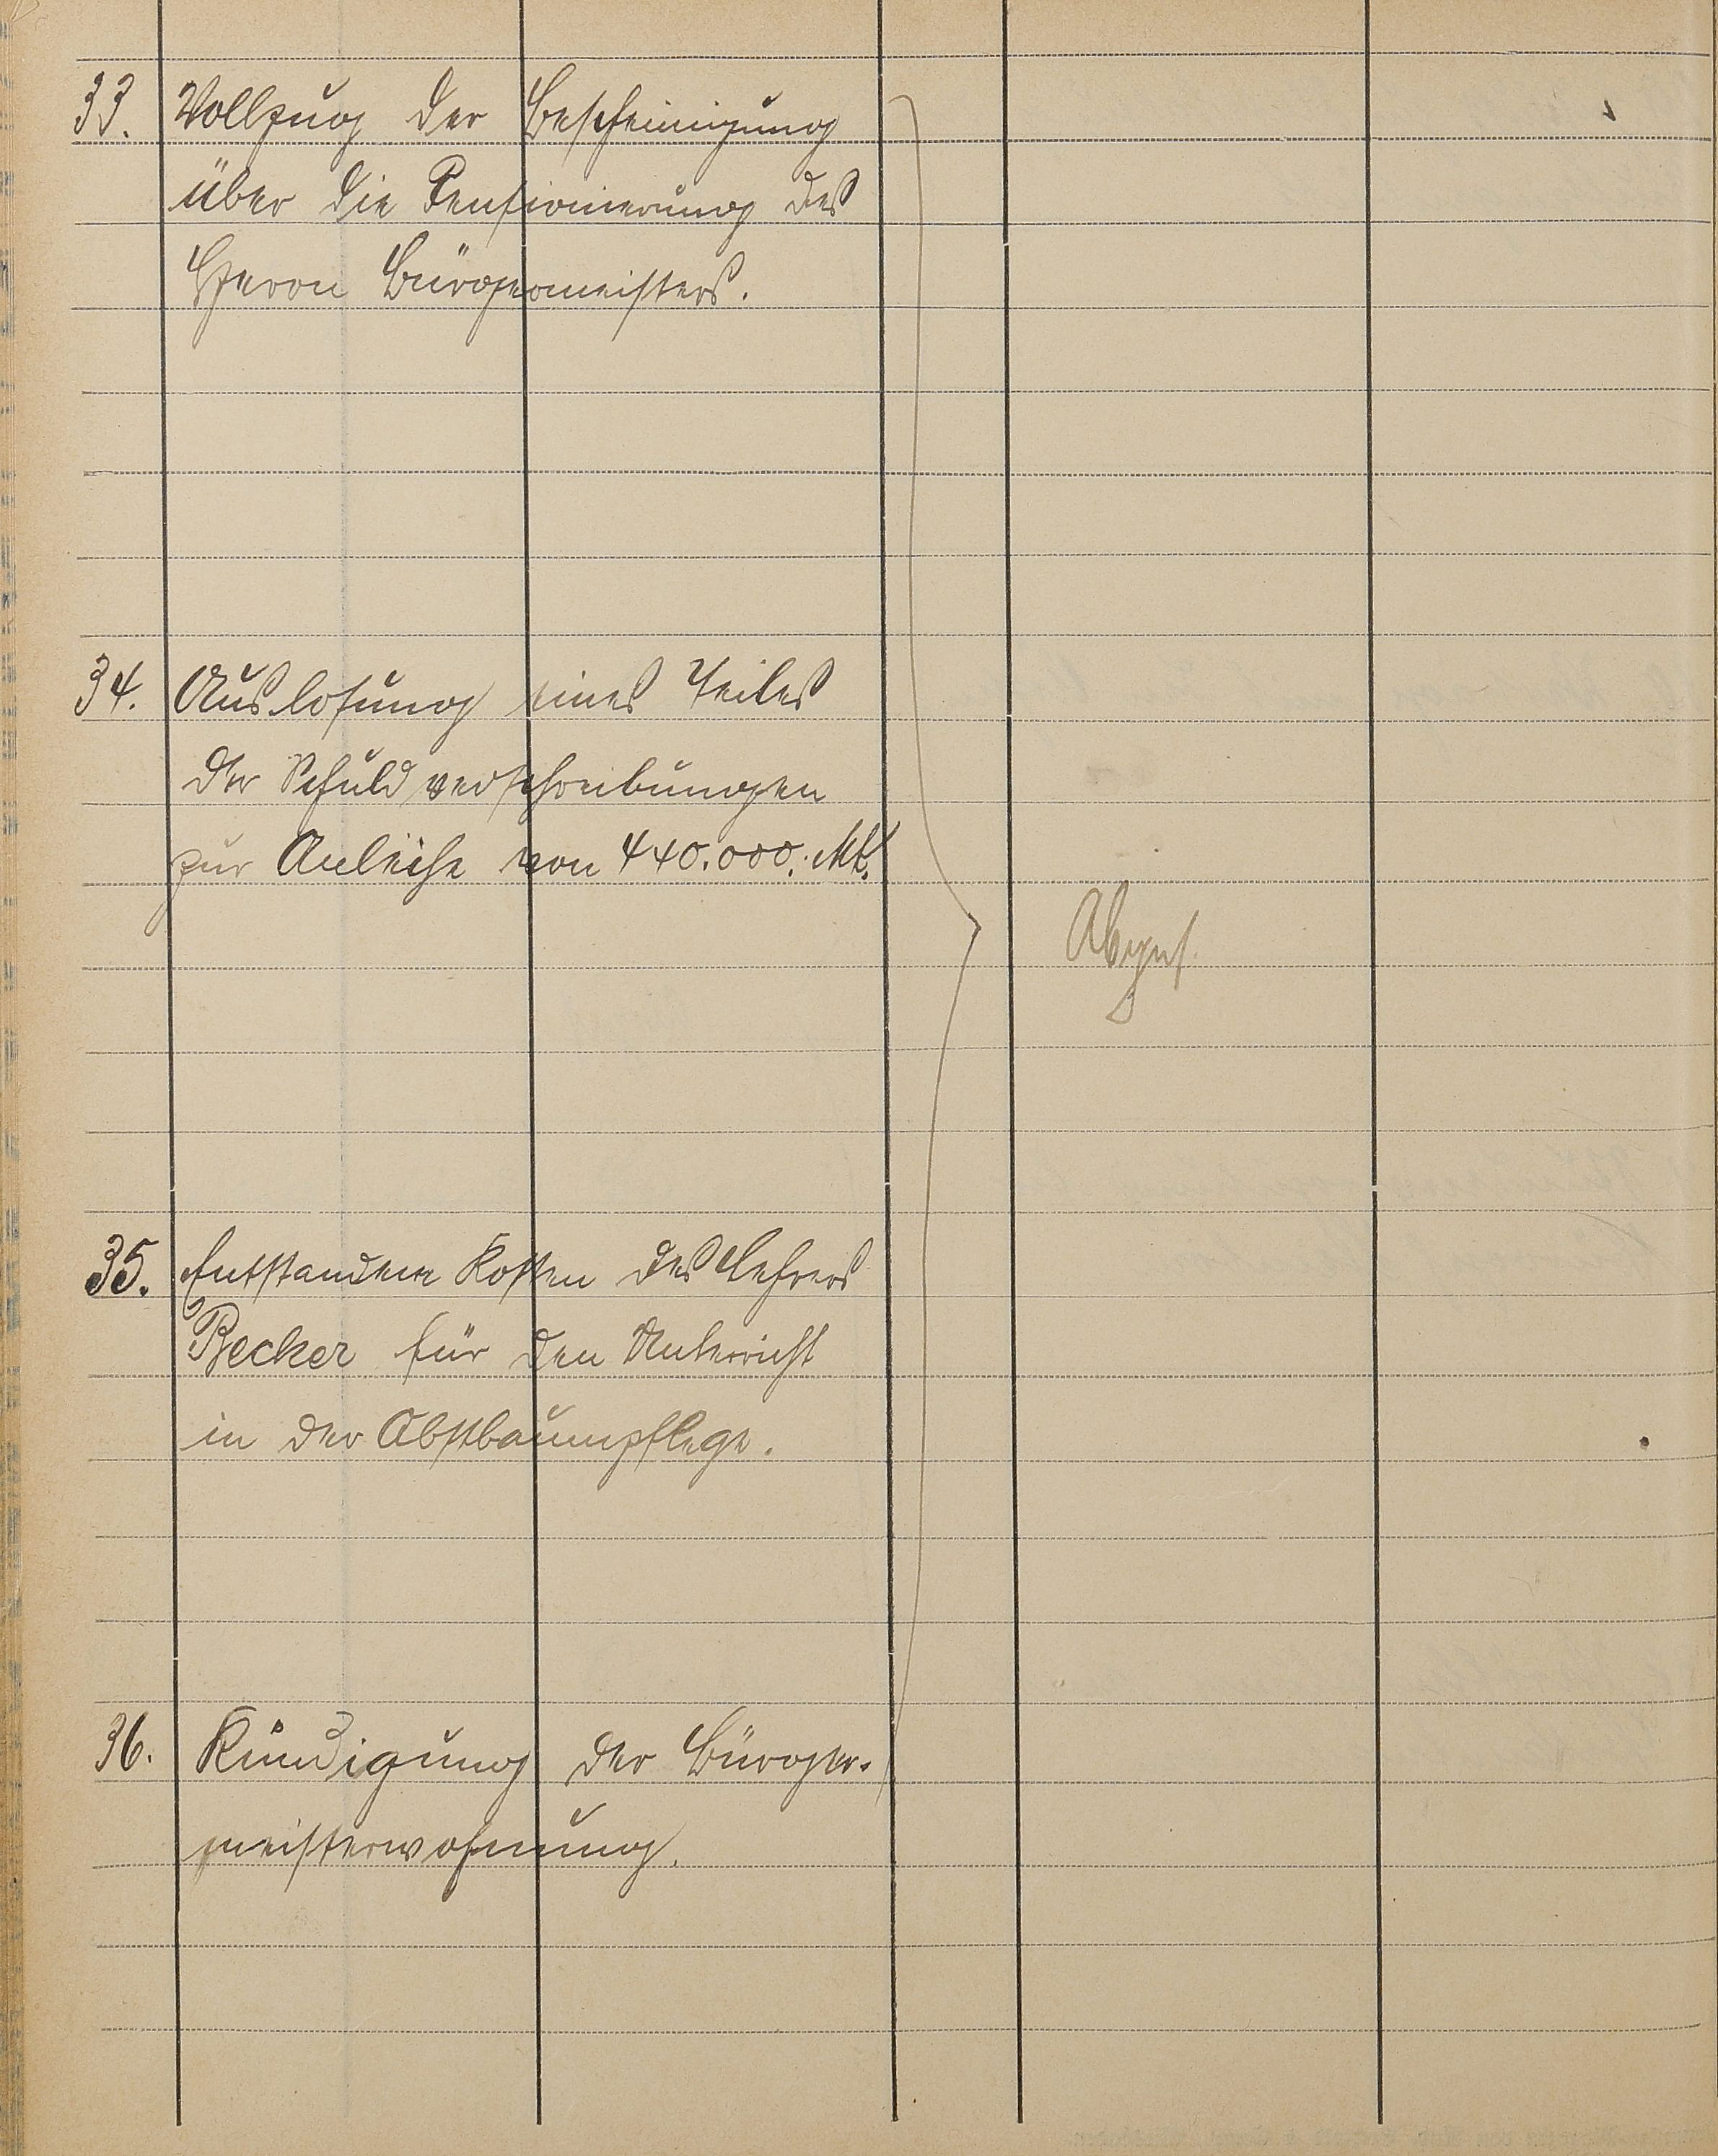 33. Vollzug der Bescheinigung
über die Pensionierung des
Herrn Bürgermeisters.
34. Auslosung eines Teiles
der Schuldverschreibungen
zur Anleihe von 440.000. Mk.
35. Entstandene Kosten des Lehrers
Becker für den Unterricht
in der Obstbaumpflege.
36. Kündigung der Bürger-
meisterwohnung.